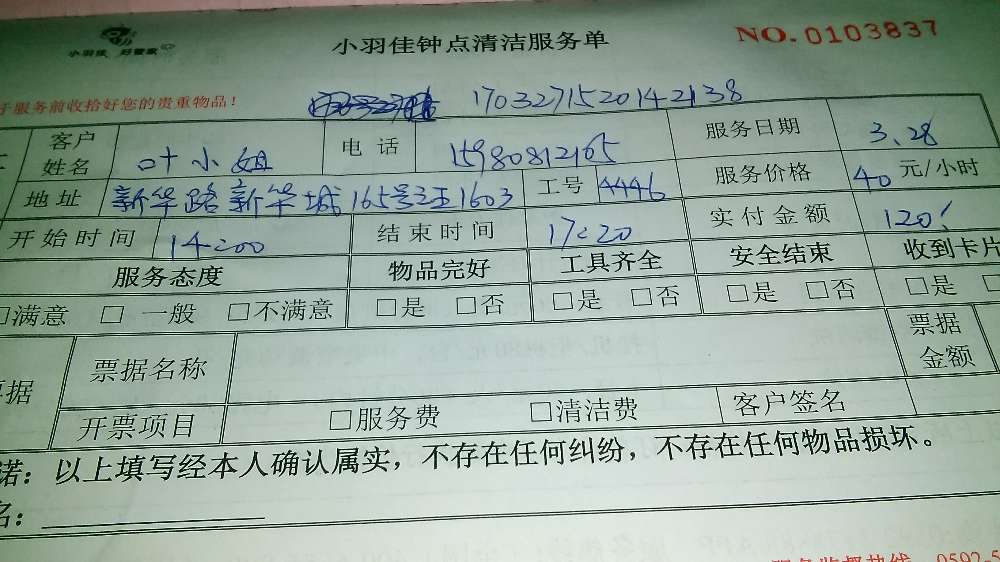 小羽佳 好管家
小羽佳钟点清洁服务单
NO. 0103837
于服务前收拾好您的贵重物品！
1703271520142138
客户姓名 叶小姐 电话 15980812165 服务日期 3.28
地址 新华路新华城165号之五1603 工号 4446 服务价格 40 元/小时
开始时间 14:00 结束时间 17:20 实付金额 120!
服务态度 物品完好 工具齐全 安全结束 收到卡片
□满意 □一般 □不满意 □是 □否 □是 □否 □是 □否 □是 □
票据 票据名称 票据金额
开票项目 □服务费 □清洁费 客户签名
诺：以上填写经本人确认属实，不存在任何纠纷，不存在任何物品损坏。
名：
服务监督热线 0592-5